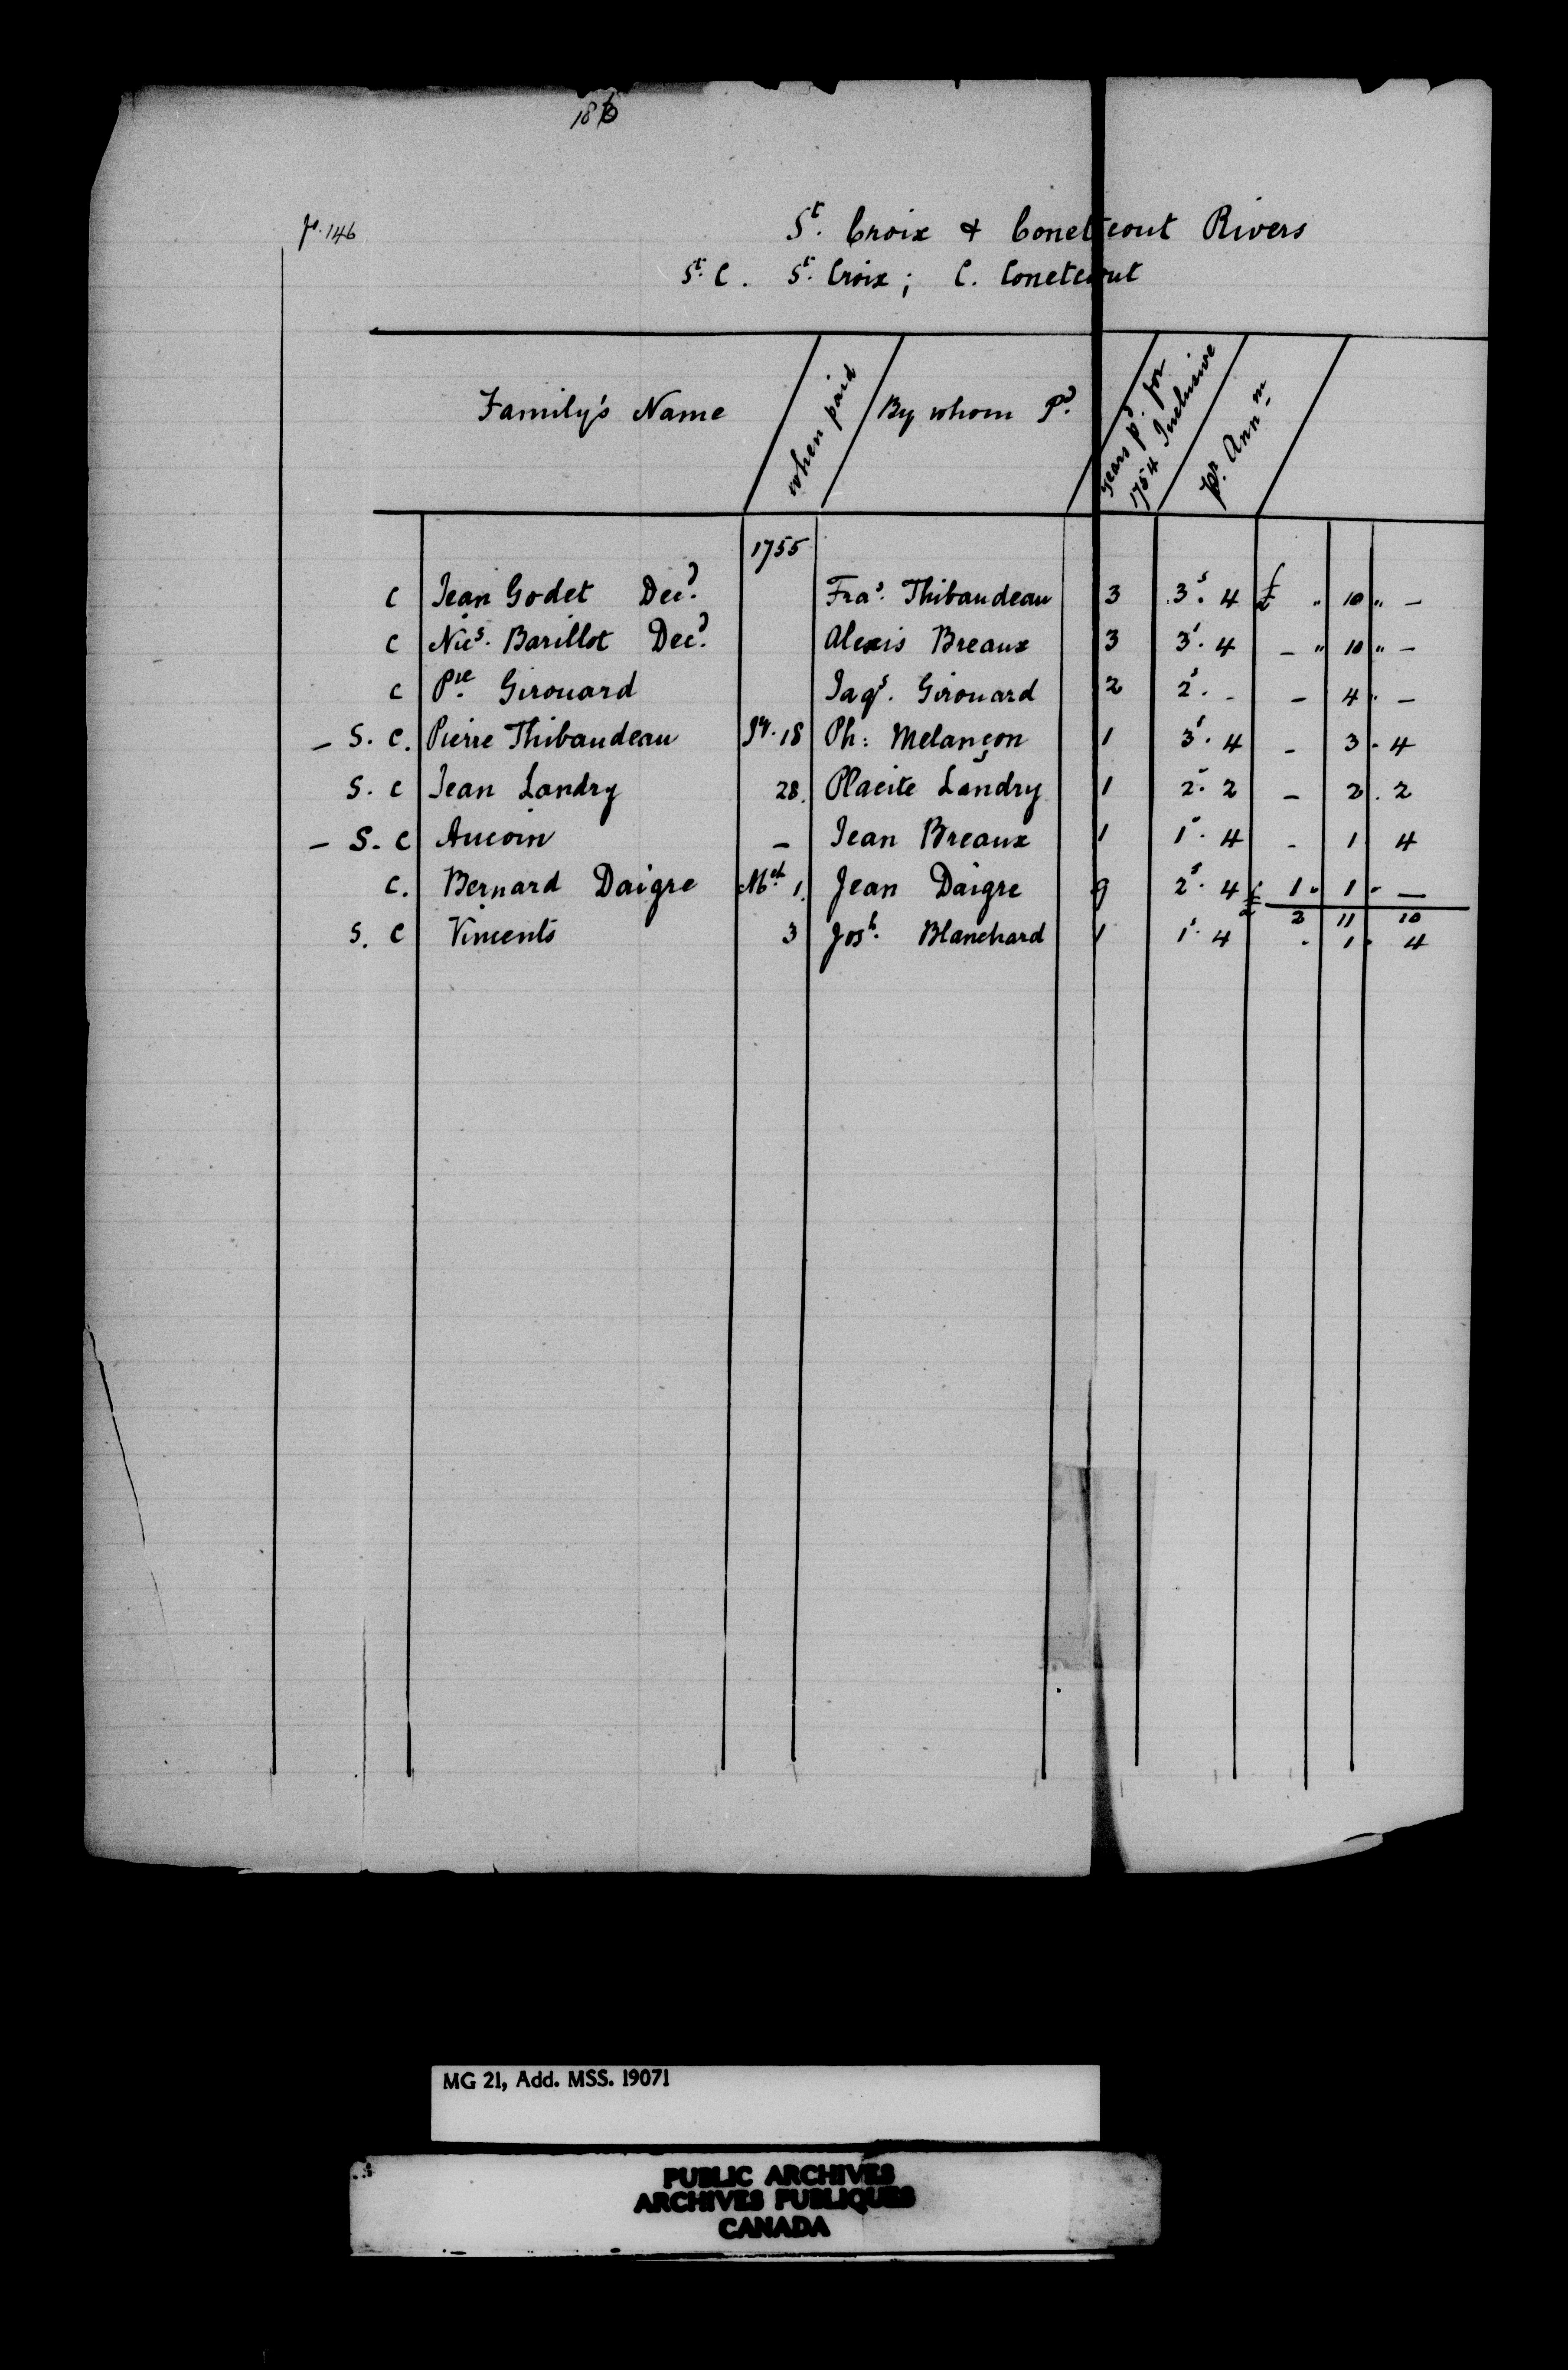 186
p. 146
St. Croix & Conetcout Rivers
St. C. St. Croix; C. Conetcout
Family's Name when paid By whom Pd. years pd. for 1754 Inclusive pr. Annm
1755
C Jean Godet Decd. Fras. Thibaudeau 3 3s. 4 £ " 10 " —
C Nics. Barillot Decd. Alexis Breaux 3 3s. 4 — " 10 " —
C Pre. Girouard Jaqs. Girouard 2 2s. - — 4 . —
— S. C. Pierre Thibaudeau Jy. 18 Ph: Melançon 1 3s. 4 - 3 . 4
S. C Jean Landry 28. Placite Landry 1 2s. 2 — 2 . 2
— S. C Aucoin — Jean Breaux 1 1s. 4 - 1 4
C. Bernard Daigre Mch. 1. Jean Daigre 9 2s. 4 £ 1 . 1 . —
£ 2 11 10
S. C Vincents 3 Josh. Blanchard 1 1s. 4 . 1 . 4
MG 21, Add. MSS. 19071
PUBLIC ARCHIVES
ARCHIVES PUBLIQUES
CANADA